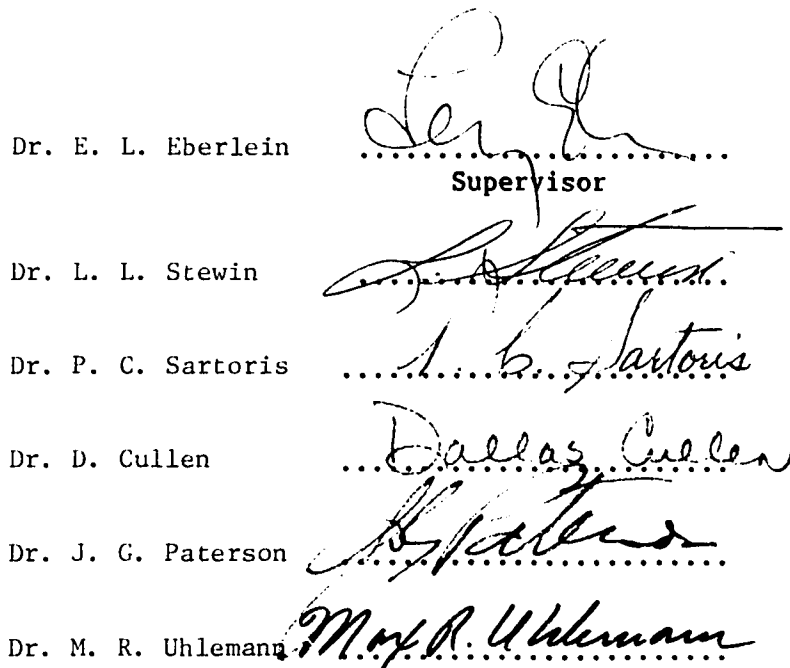 Dr. E. L. Eberlein
Supervisor
Dr. L. L. Stewin L. L. Stewin
Dr. P. C. Sartoris P. C. Sartoris
Dr. D. Cullen Dallas Cullen
Dr. J. G. Paterson JG Paterson
Dr. M. R. Uhlemann Max R. Uhlemann